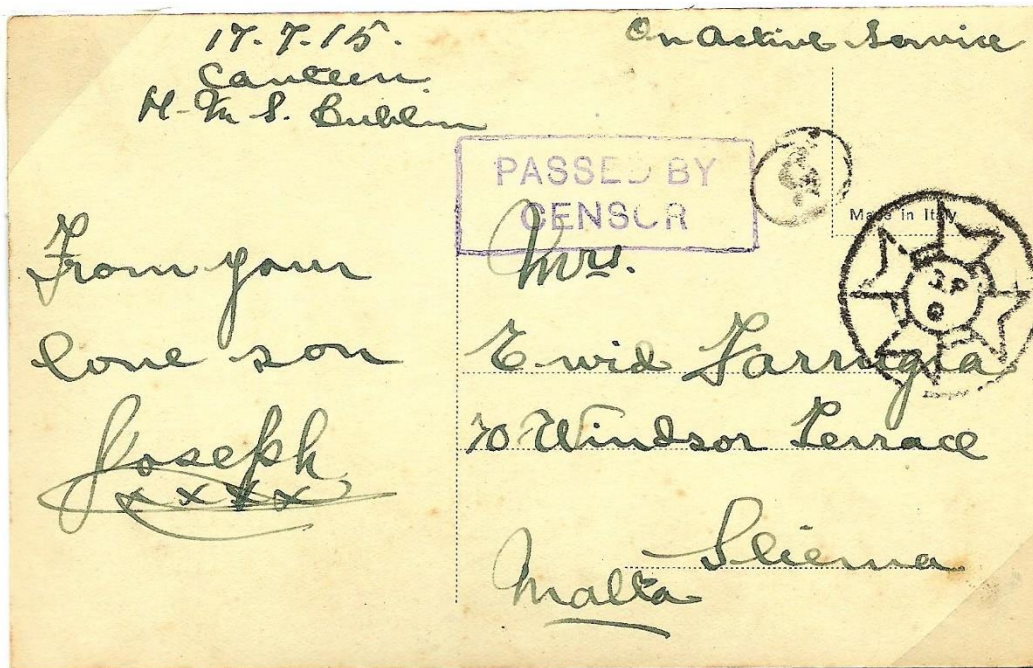 17.7.15.
Canteen
H.M.S. Dublin
On active Service
PASSED BY
CENSOR
Made in Italy
From your
love son
Joseph
xxxx
Mrs.
Ewid Farrugia
70 Windsor Terrace
Sliema
Malta